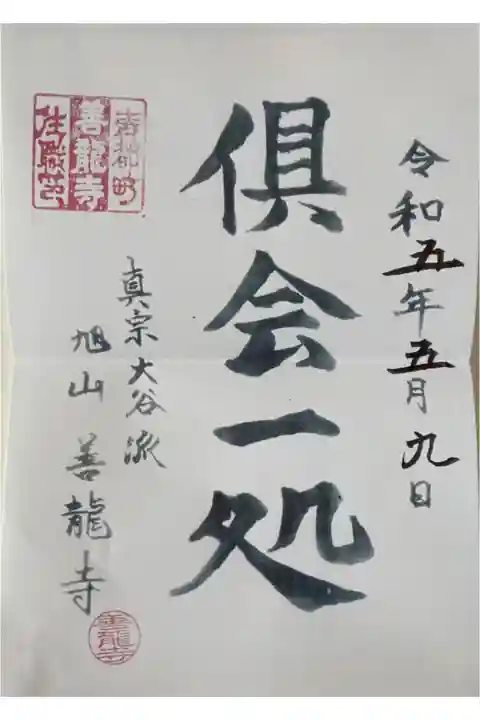 令和五年五月九日
倶会一処
真宗大谷派
旭山 善龍寺
善龍寺
善龍寺